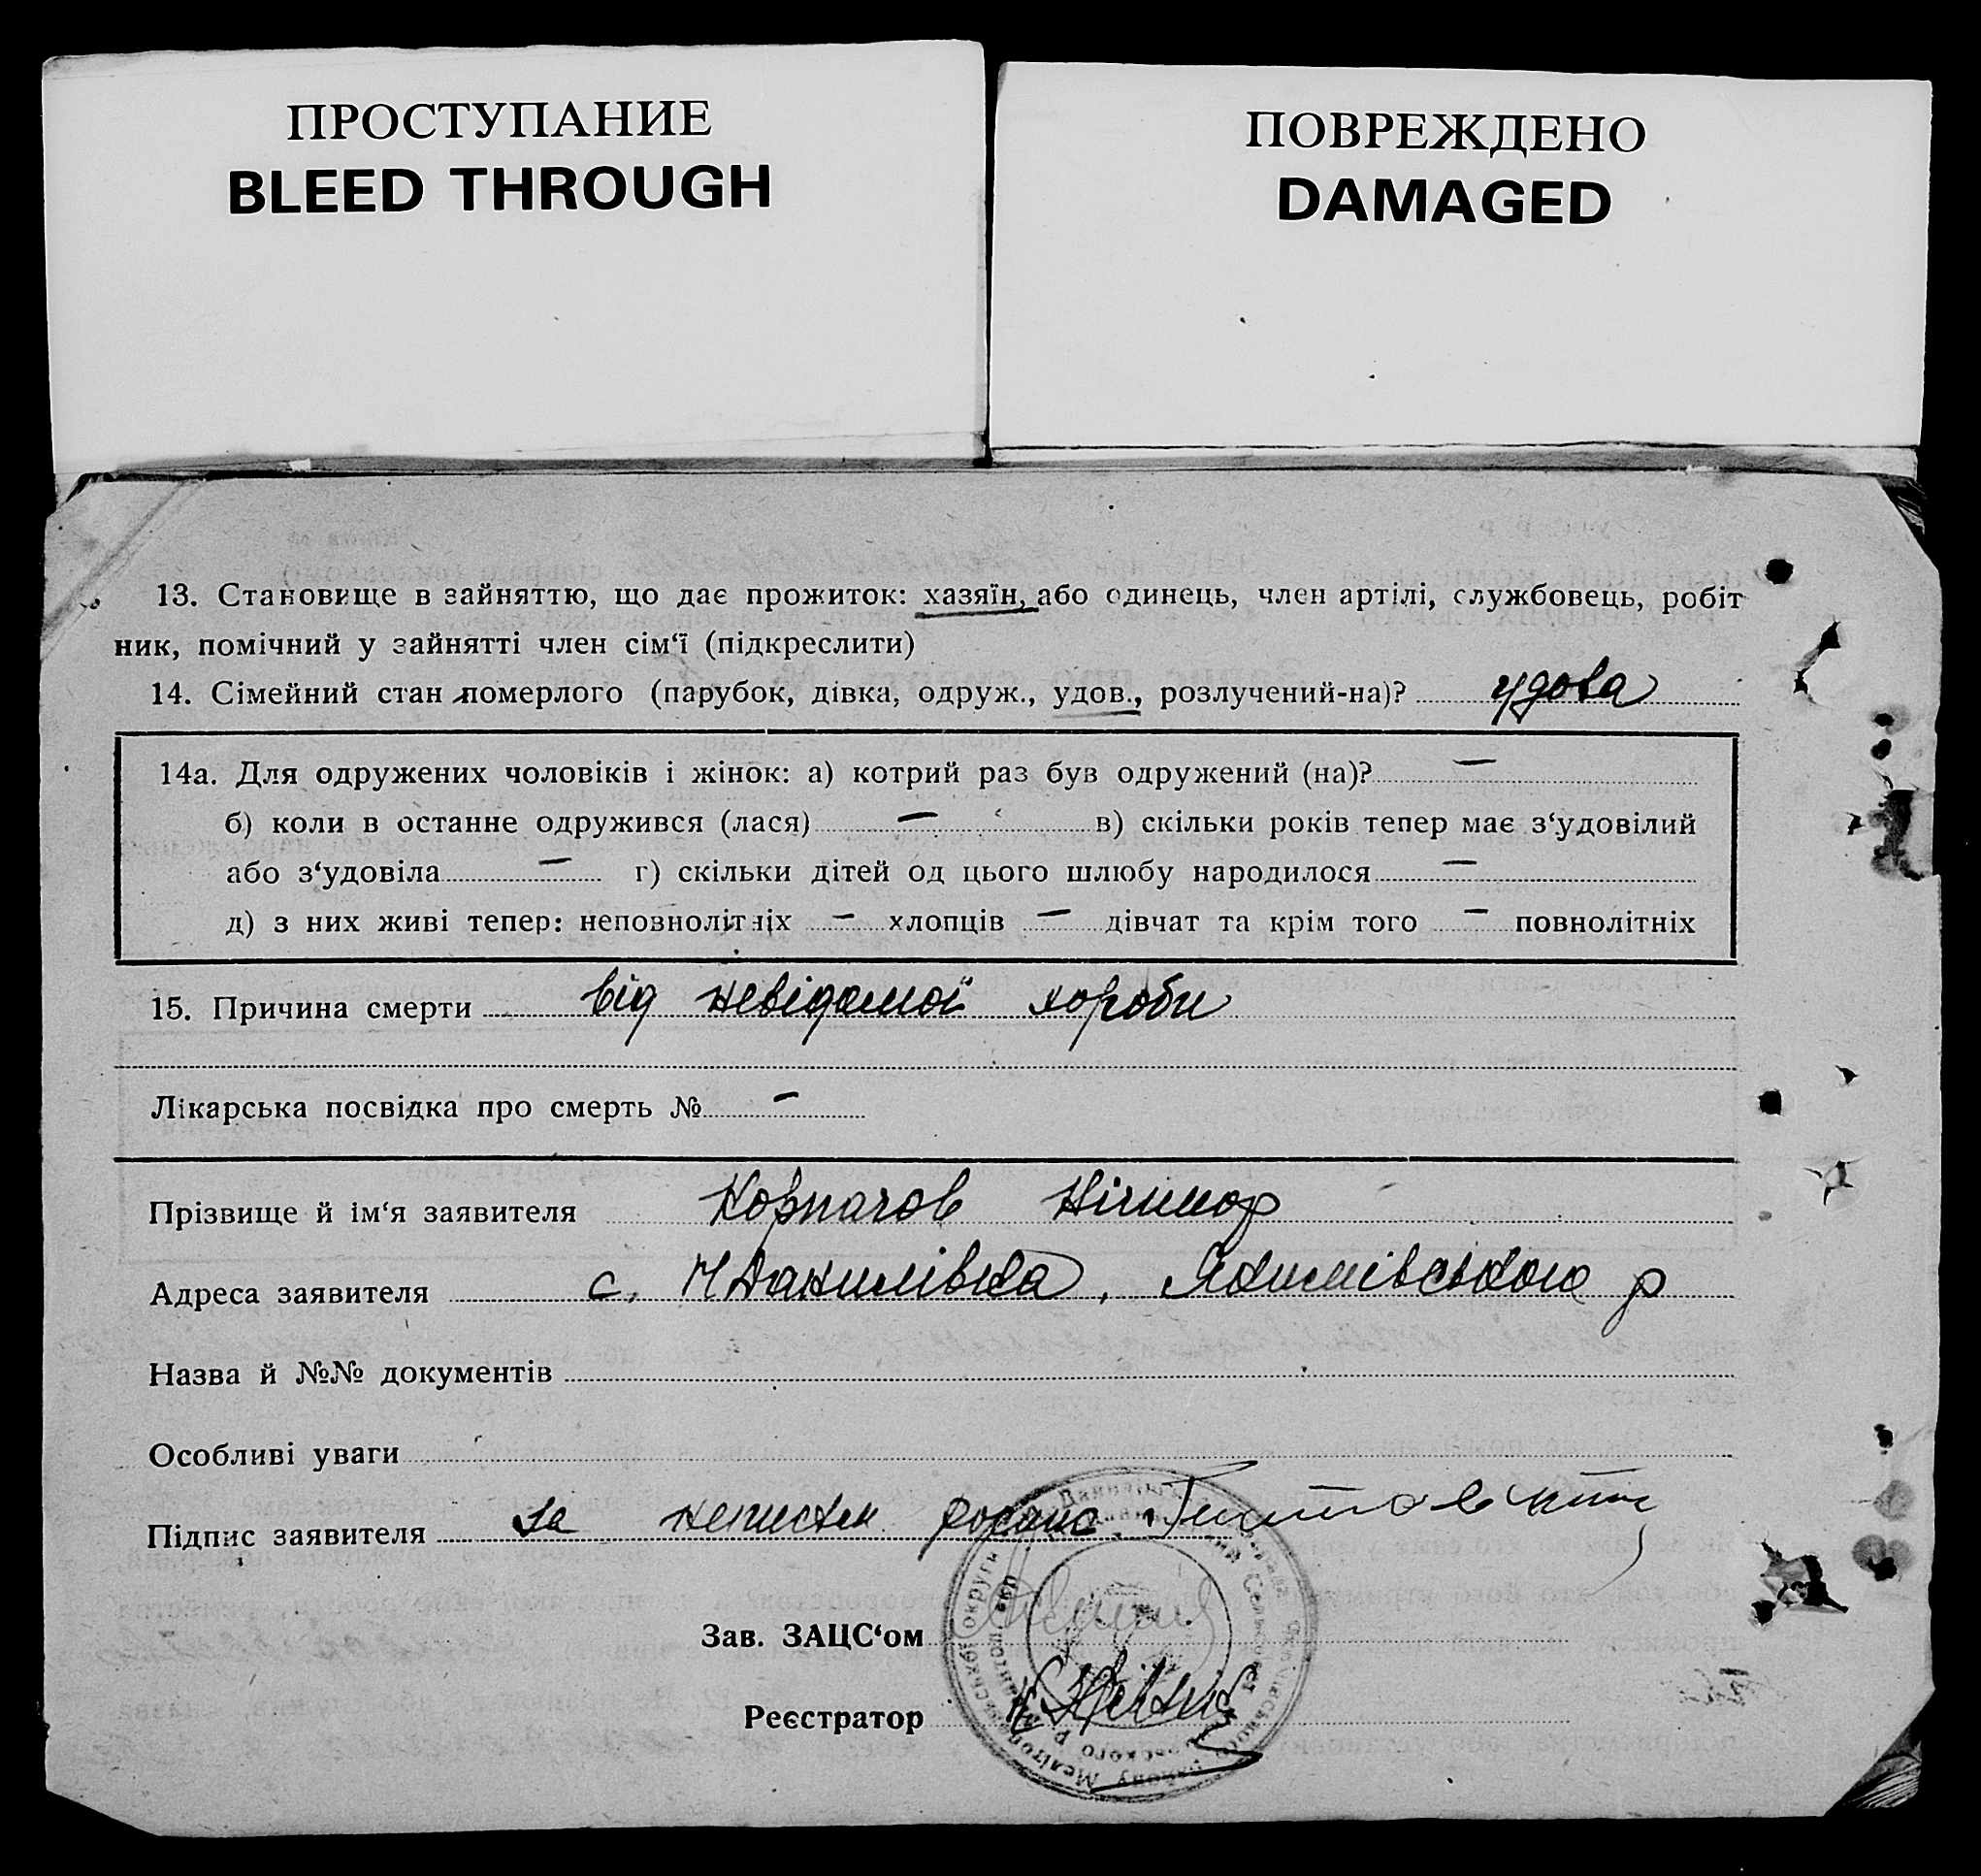 ПРОСТУПАНИЕ
BLEED THROUGH
ПОВРЕЖДЕНО
DAMAGED
13. Становище в зайняттю, що дає прожиток: хазяїн, або одинець, член артілі, службовець, робіт
ник, помічний у зайнятті член сім‘ї (підкреслити)
14. Сімейний стан померлого (парубок, дівка, одруж., удов., розлучений-на)? удова
14а. Для одружених чоловіків і жінок: а) котрий раз був одружений (на)? —
б) коли в останне одружився (лася) — в) скільки років тепер має з‘удовілий
або з‘удовіла — г) скільки дітей од цього шлюбу народилося —
д) з них живі тепер: неповнолітніх — хлопців — дівчат та крім того — повнолітніх
15. Причина смерти від невідомої хороби
Лікарська посвідка про смерть № —
Прізвище й ім‘я заявителя Корпачов Нічипор
Адреса заявителя с. Н Данилівка, Якимівського р
Назва й №№ документів
Особливі уваги
Підпис заявителя за неписьм
Зав. ЗАЦС‘ом
Реєстратор